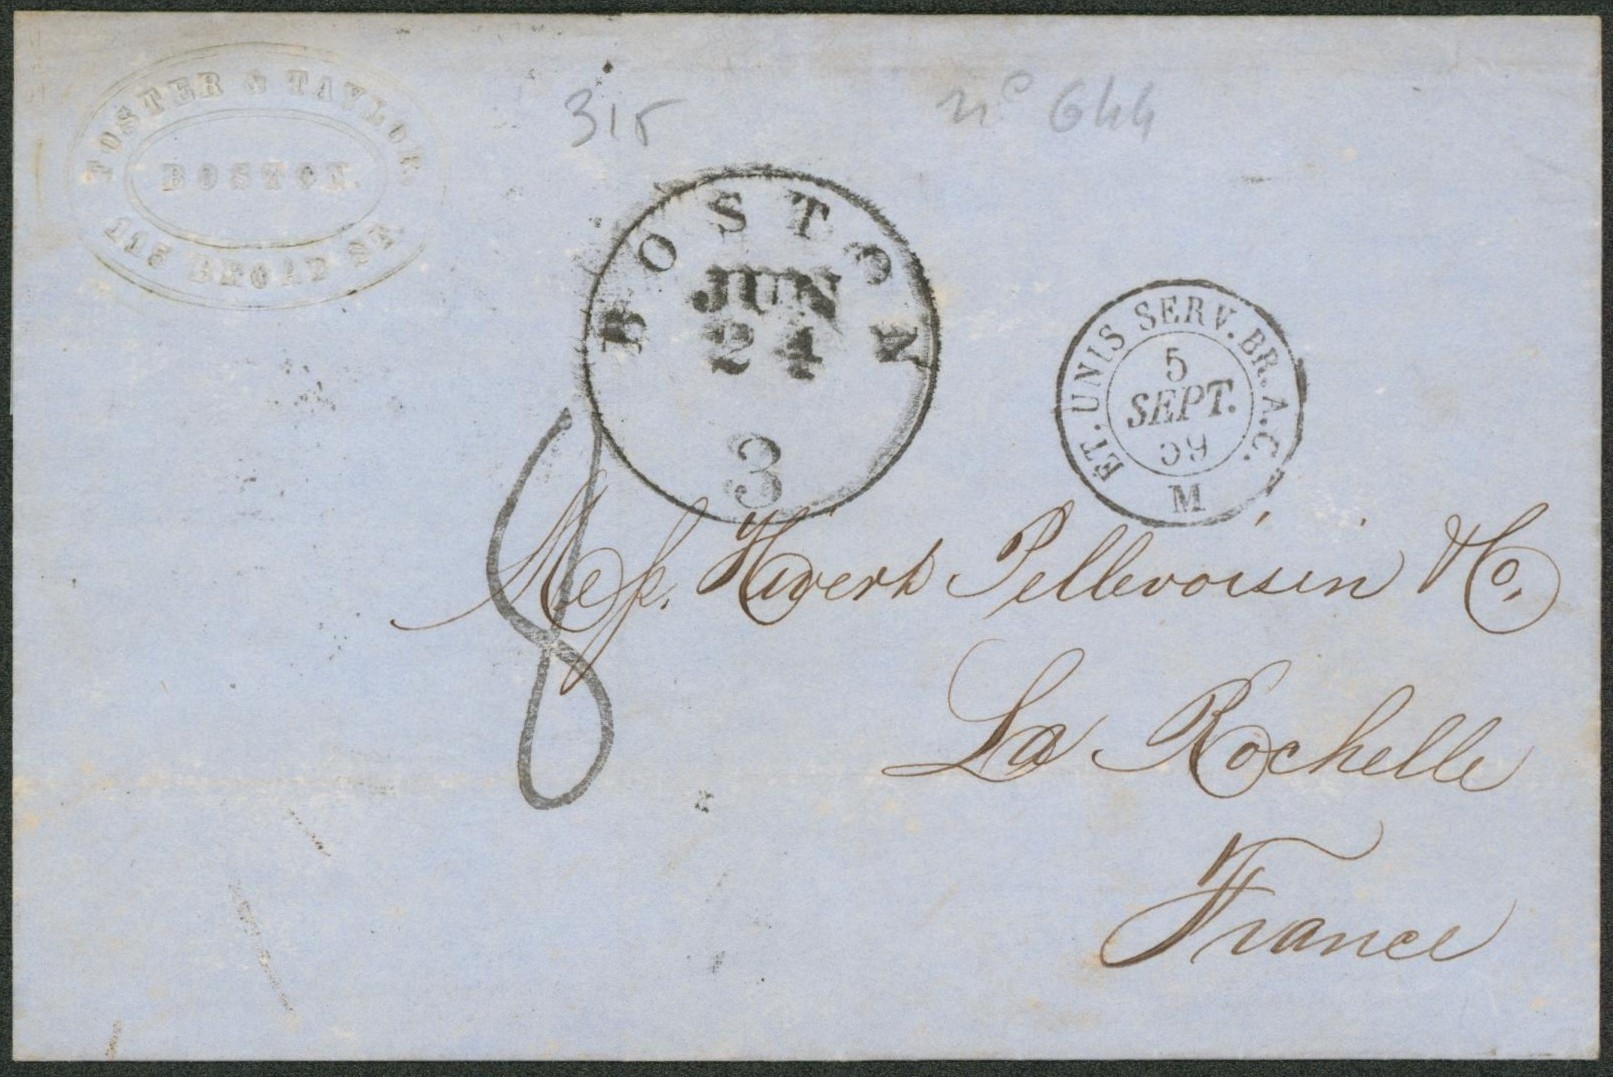 FOSTER & TAYLOR.
BOSTON.
115 BROAD ST.
315
nº 644
BOSTON
JUN
24
3
ET. UNIS SERV. BR. A. C.
5
SEPT.
59
M
8
Mess. Hivert Pellevoisin & Co.
La Rochelle
France